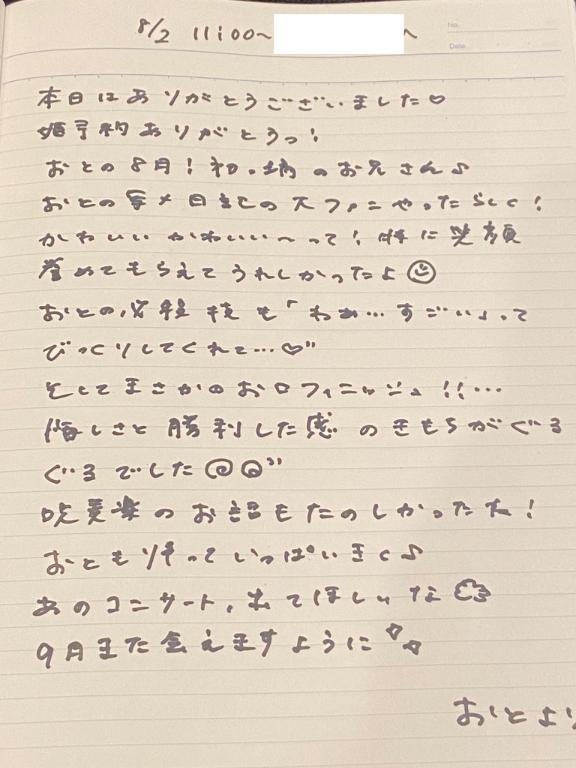 8/2 11:00〜 〜
No.
Date
本日はありがとうございました♡
婚予約ありがとうっ!
おとの8月!初.端のお兄さん♪
おとの写メ日記の大ファンやったらしく!
かわいいかわいい〜って!特に笑顔
誉めてもらえてうれしかったよ☺
おとの必殺技も「わぁ…すごい」って
びっくりしてくれて…♡"
そしてまさかのお口フィニッシュ!!…
悔しさと勝利した感のきもちがぐる
ぐるでした@@"
吹奏楽のお話もたのしかったね!
おともソロっていっぱいきく♪
あのコンサート,出てほしいな
9月また会えますように
おとより